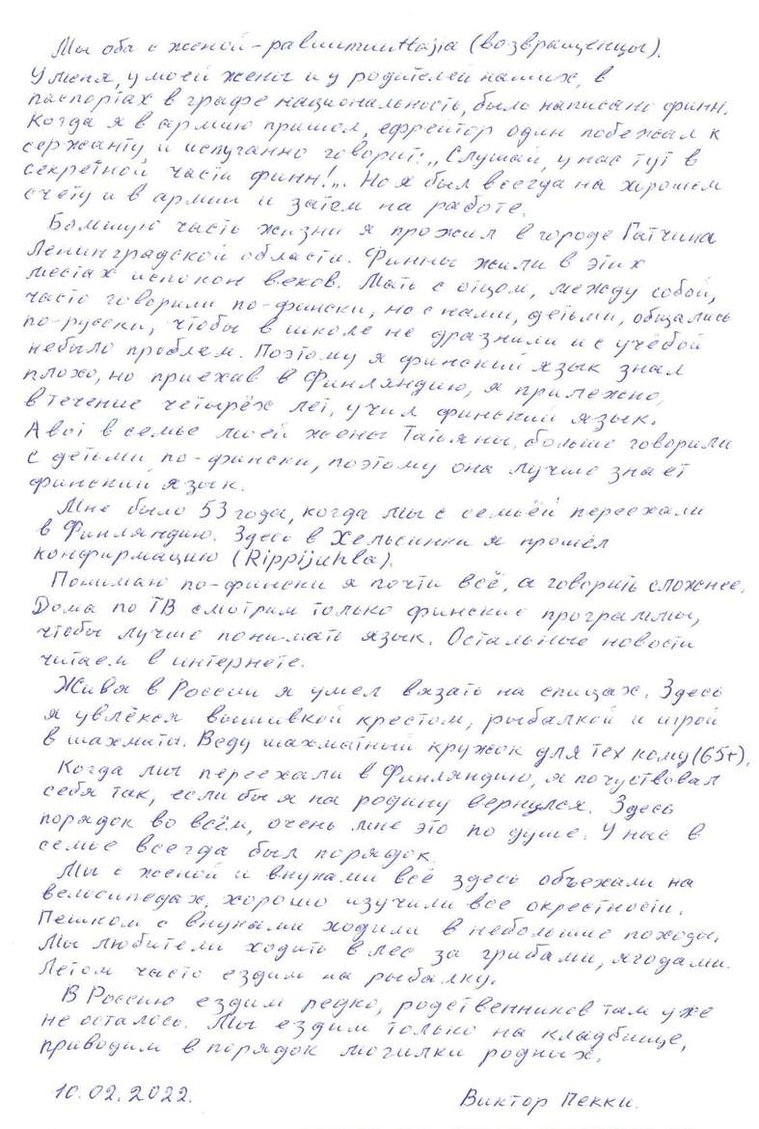 Мы оба с женой - paluumuuttajia (возвращенцы).
У меня, у моей жены и у родителей наших, в
паспортах в графе национальность, было написано финн.
Когда я в армию пришел, ефрейтор один побежал к
сержанту и испуганно говорит: „Слушай, у нас тут в
секретной части финн!„. Но я был всегда на хорошем
счету и в армии и затем на работе.
Большую часть жизни я прожил в городе Гатчина
Ленинградской области. Финны жили в этих
местах испокон веков. Мать с отцом, между собой,
часто говорили по-фински, но с нами, детьми, общались
по-русски, чтобы в школе не дразнили и с учёбой
небыло проблем. Поэтому я финский язык знал
плохо, но приехав в Финляндию, я прилежно,
в течение четырёх лет, учил финский язык.
А вот в семье моей жены Татьяны, больше говорили
с детьми по-фински, поэтому она лучше знает
финский язык.
Мне было 53 года, когда мы с семьёй переехали
в Финляндию. Здесь в Хельсинки я прошёл
конфирмацию (Rippijuhla).
Понимаю по-фински я почти всё, а говорить сложнее.
Дома по ТВ смотрим только финские программы,
чтобы лучше понимать язык. Остальные новости
читаем в интернете.
Живя в России я умел вязать на спицах. Здесь
я увлёкся вышивкой крестом, рыбалкой и игрой
в шахматы. Веду шахматный кружок для тех кому (65+).
Когда мы переехали в Финляндию, я почуствовал
себя так, если бы я на родину вернулся. Здесь
порядок во всём, очень мне это по душе. У нас в
семье всегда был порядок.
Мы с женой и внуками всё здесь объехали на
велосипедах, хорошо изучили все окрестности.
Пешком с внуками ходили в небольшие походы.
Мы любители ходить в лес за грибами, ягодами.
Летом часто ездим на рыбалку.
В Россию ездим редко, родственников там уже
не осталось. Мы ездим только на кладбище,
приводим в порядок могилки родных.
10.02.2022. Виктор Пекки.